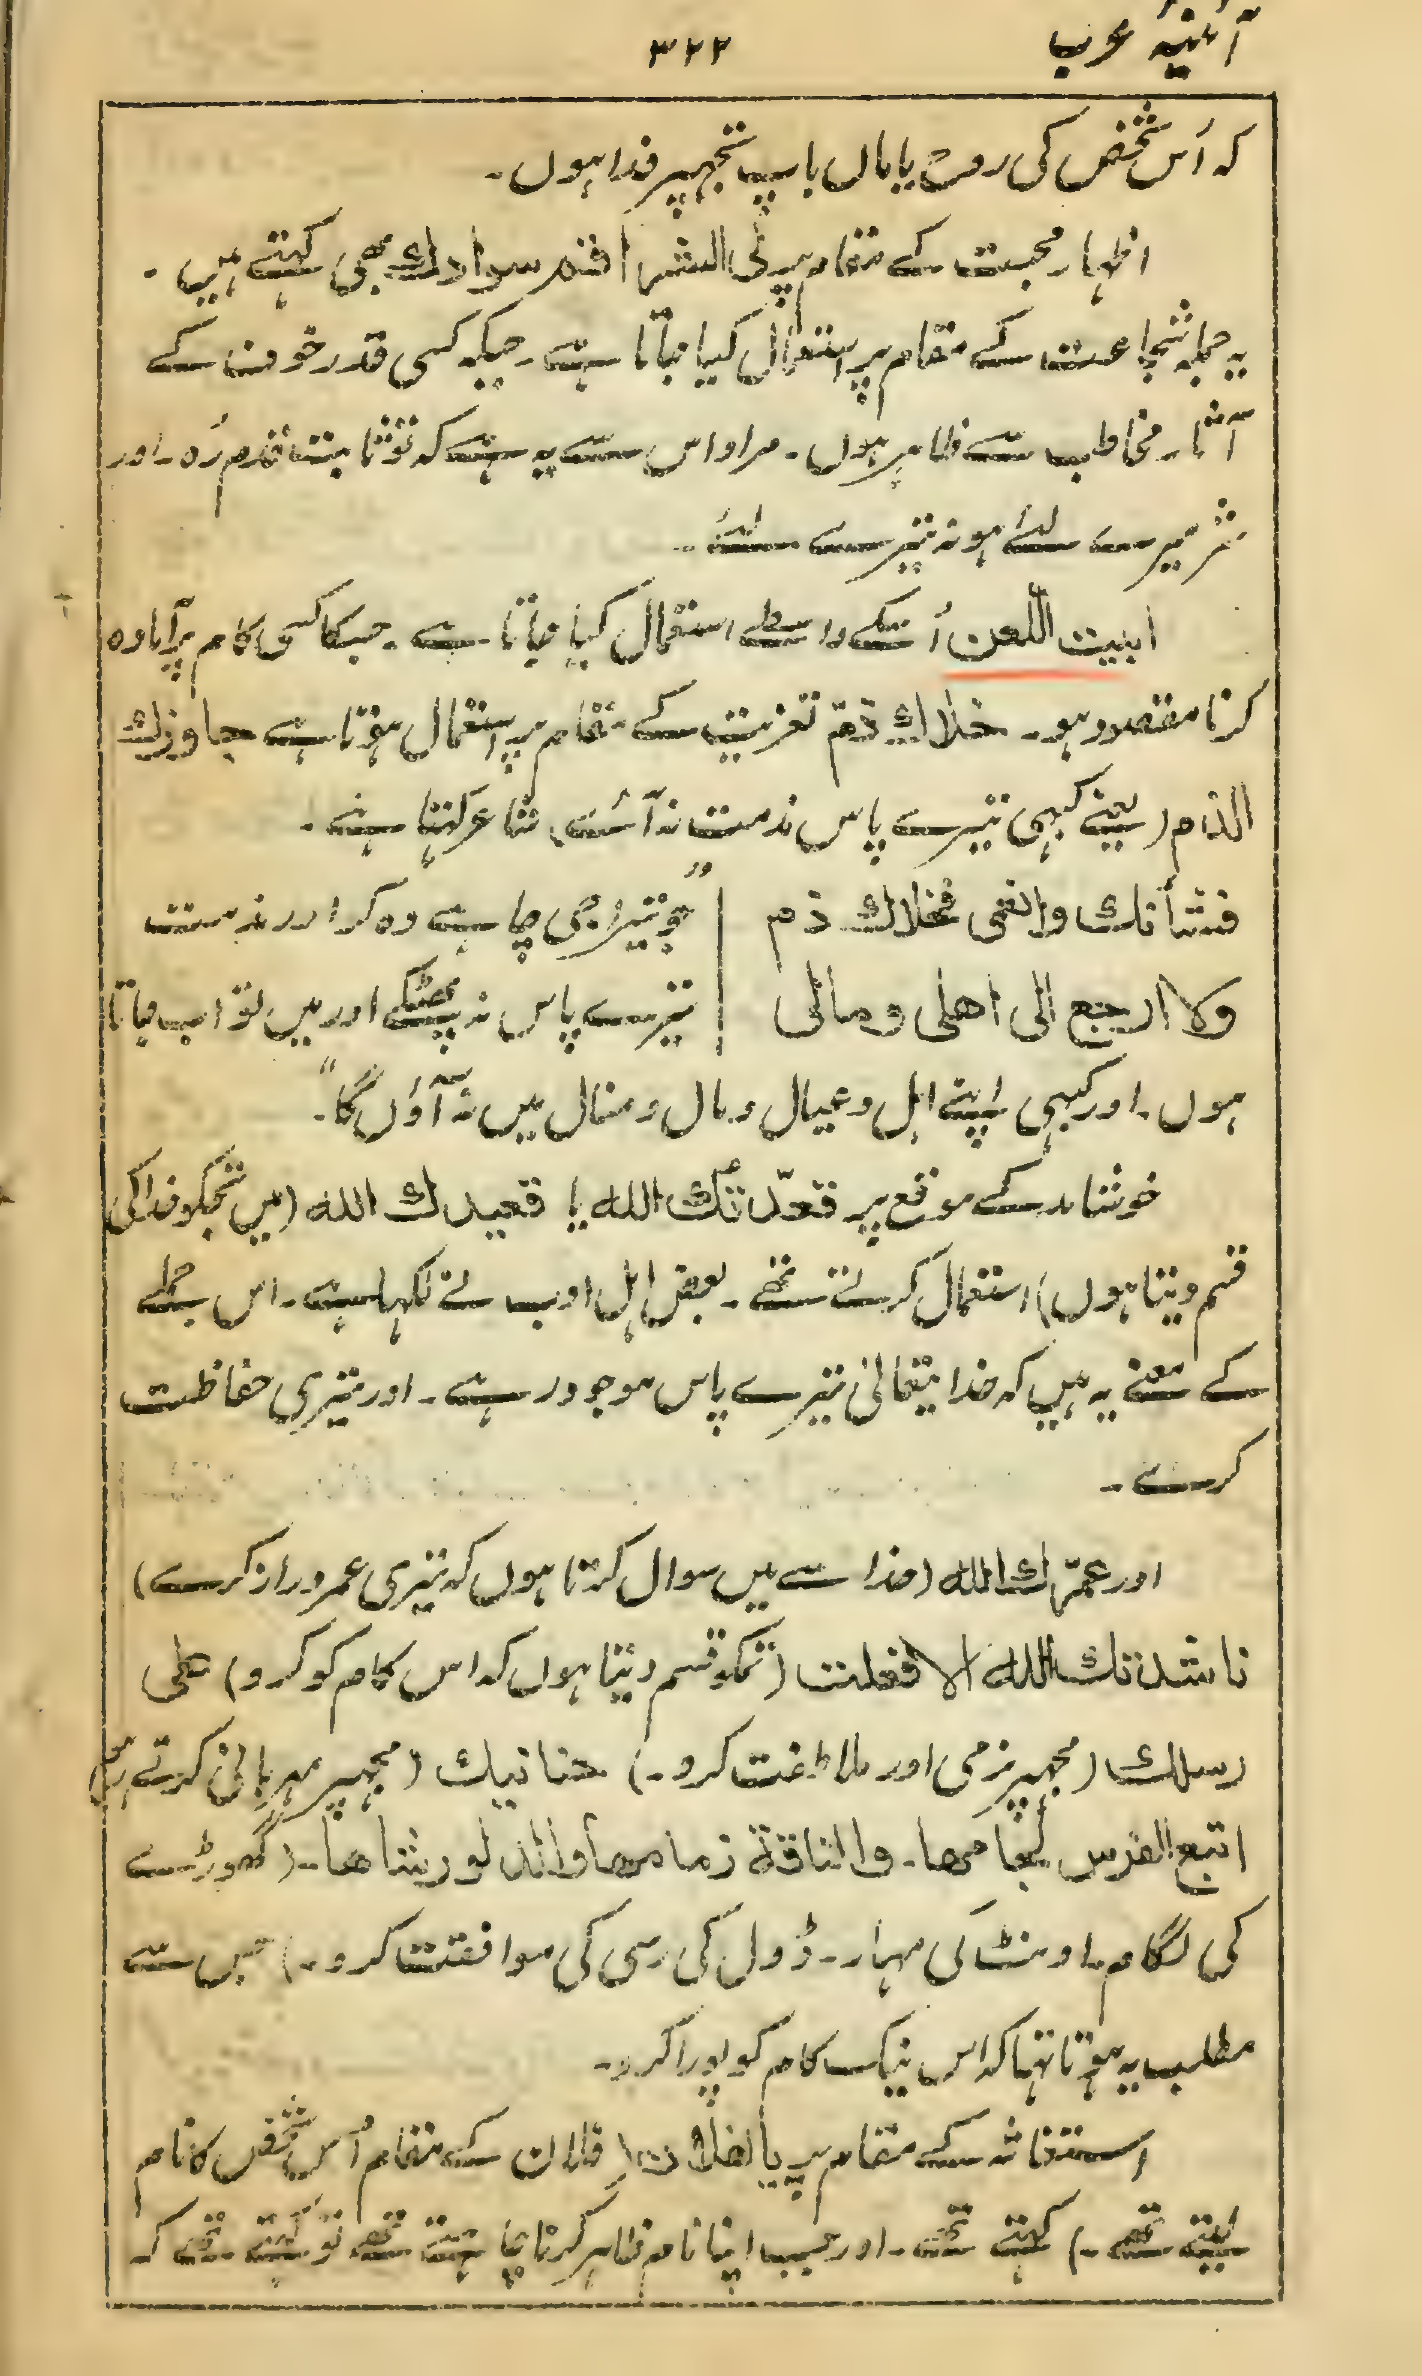 آئینۂ عرب
۳۲۲
کہ اُس شخص کی روح یا ماں باپ تجہپر فدا ہوں۔
اظہار محبت کے مقام پر لی الشر اقم سوادك بھی کہتے ہیں۔
یہ جملہ شجاعت کے مقام پر استعمال کیا جاتا ہے۔ جبکہ کسی قدر خوف کے
آثار مخاطب سے ظاہر ہوں۔ مراد اس سے یہ ہے کہ تو ثابت قدم رہ۔ اور
شر میرے لئے ہو نہ تیرے لئے۔
ابیت اللعن اُسکے واسطے استعمال کیا جاتا ہے۔ جسکا کسی کام پر آمادہ
کرنا مقصود ہو۔ خلاك ذمّ تعزیت کے مقام پر استعمال ہوتا ہے جاوزك
الذام (یعنے کبہی تیرے پاس مذمت نہ آئے) شاعر کہتا ہے۔
فشأنك وانعمی فخلاك ذم
"جو تیرا جی چاہے وہ کر اور مذمت
ولا ارجع الی اهلی ومالی
تیرے پاس نہ پھٹکے اور میں تو اب جاتا
ہوں۔ اور کبہی اپنے اہل و عیال و مال و منال میں نہ آؤں گا"۔
خوشامد کے موقع پر قعدتك الله یا قعیدك الله (میں تجکو خدا کی
قسم دیتا ہوں) استعمال کرتے تھے۔ بعض اہل ادب نے لکہا ہے۔ اس جملے
کے معنے یہ ہیں کہ خدا یتعالیٰ تیرے پاس موجود رہے۔ اور تیری حفاظت
کرے۔
اور عمّرك الله (خدا سے میں سوال کرتا ہوں کہ تیری عمر دراز کرے)
ناشدتك الله الا فعلت (تمکو قسم دیتا ہوں کہ اس کام کو کرو) علی
رسلك (مجہپر نرمی اور ملاطفت کرو۔) حنانیك (مجہپر مہربانی کرتے رہو)
اتبع الفرس لجامها۔ والناقة زمامها والدلو رشاها۔ (گھوڑے
کی لگام۔ اونٹ کی مہار۔ ڈول کی رسی کی موافقت کرو۔) جس سے
مطلب یہ ہوتا تہا کہ اس نیک کام کو پورا کرو۔
استغاثہ کے مقام پر یا لفلان (فلان کے مقام اُس شخص کا نام
لیتے تھے۔) کہتے تھے۔ اور جب اپنا نام ظاہر کرنا چاہتے تھے تو کہتے تھے کہ